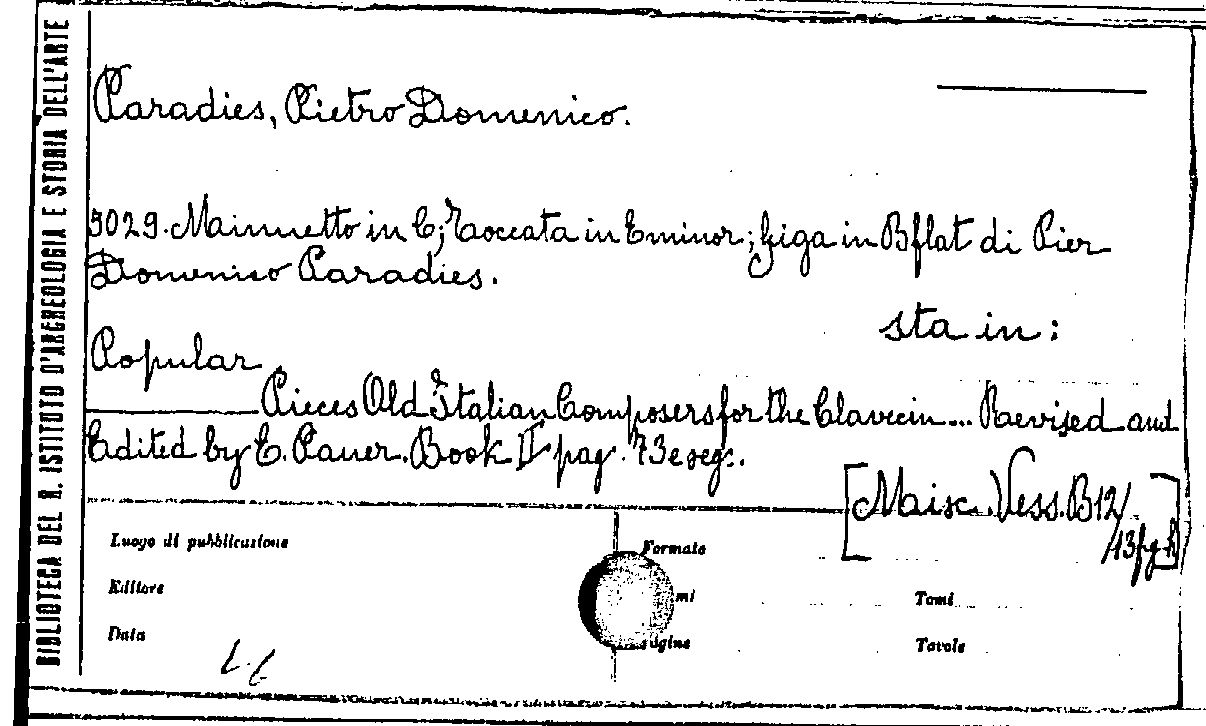 BIBLIOTECA DEL R. ISTITUTO D'ARCHEOLOGIA E STORIA DELL'ARTE
Paradies, Pietro Domenico.
5029. Mainuetto in C; Toccata in E minor; Giga in B flat di Pier
Domenico Paradies.
sta in:
Popular
Pieces Old Italian Composers for the Clavecin... Raevised and
Edited by E. Pauer. Book II pag. 73 e segg.
[Maisc. Vess. B12/
/13 fg h]
Luogo di pubblicazione
Formato
Editore
mi
Tomi
Data
agine
Tavole